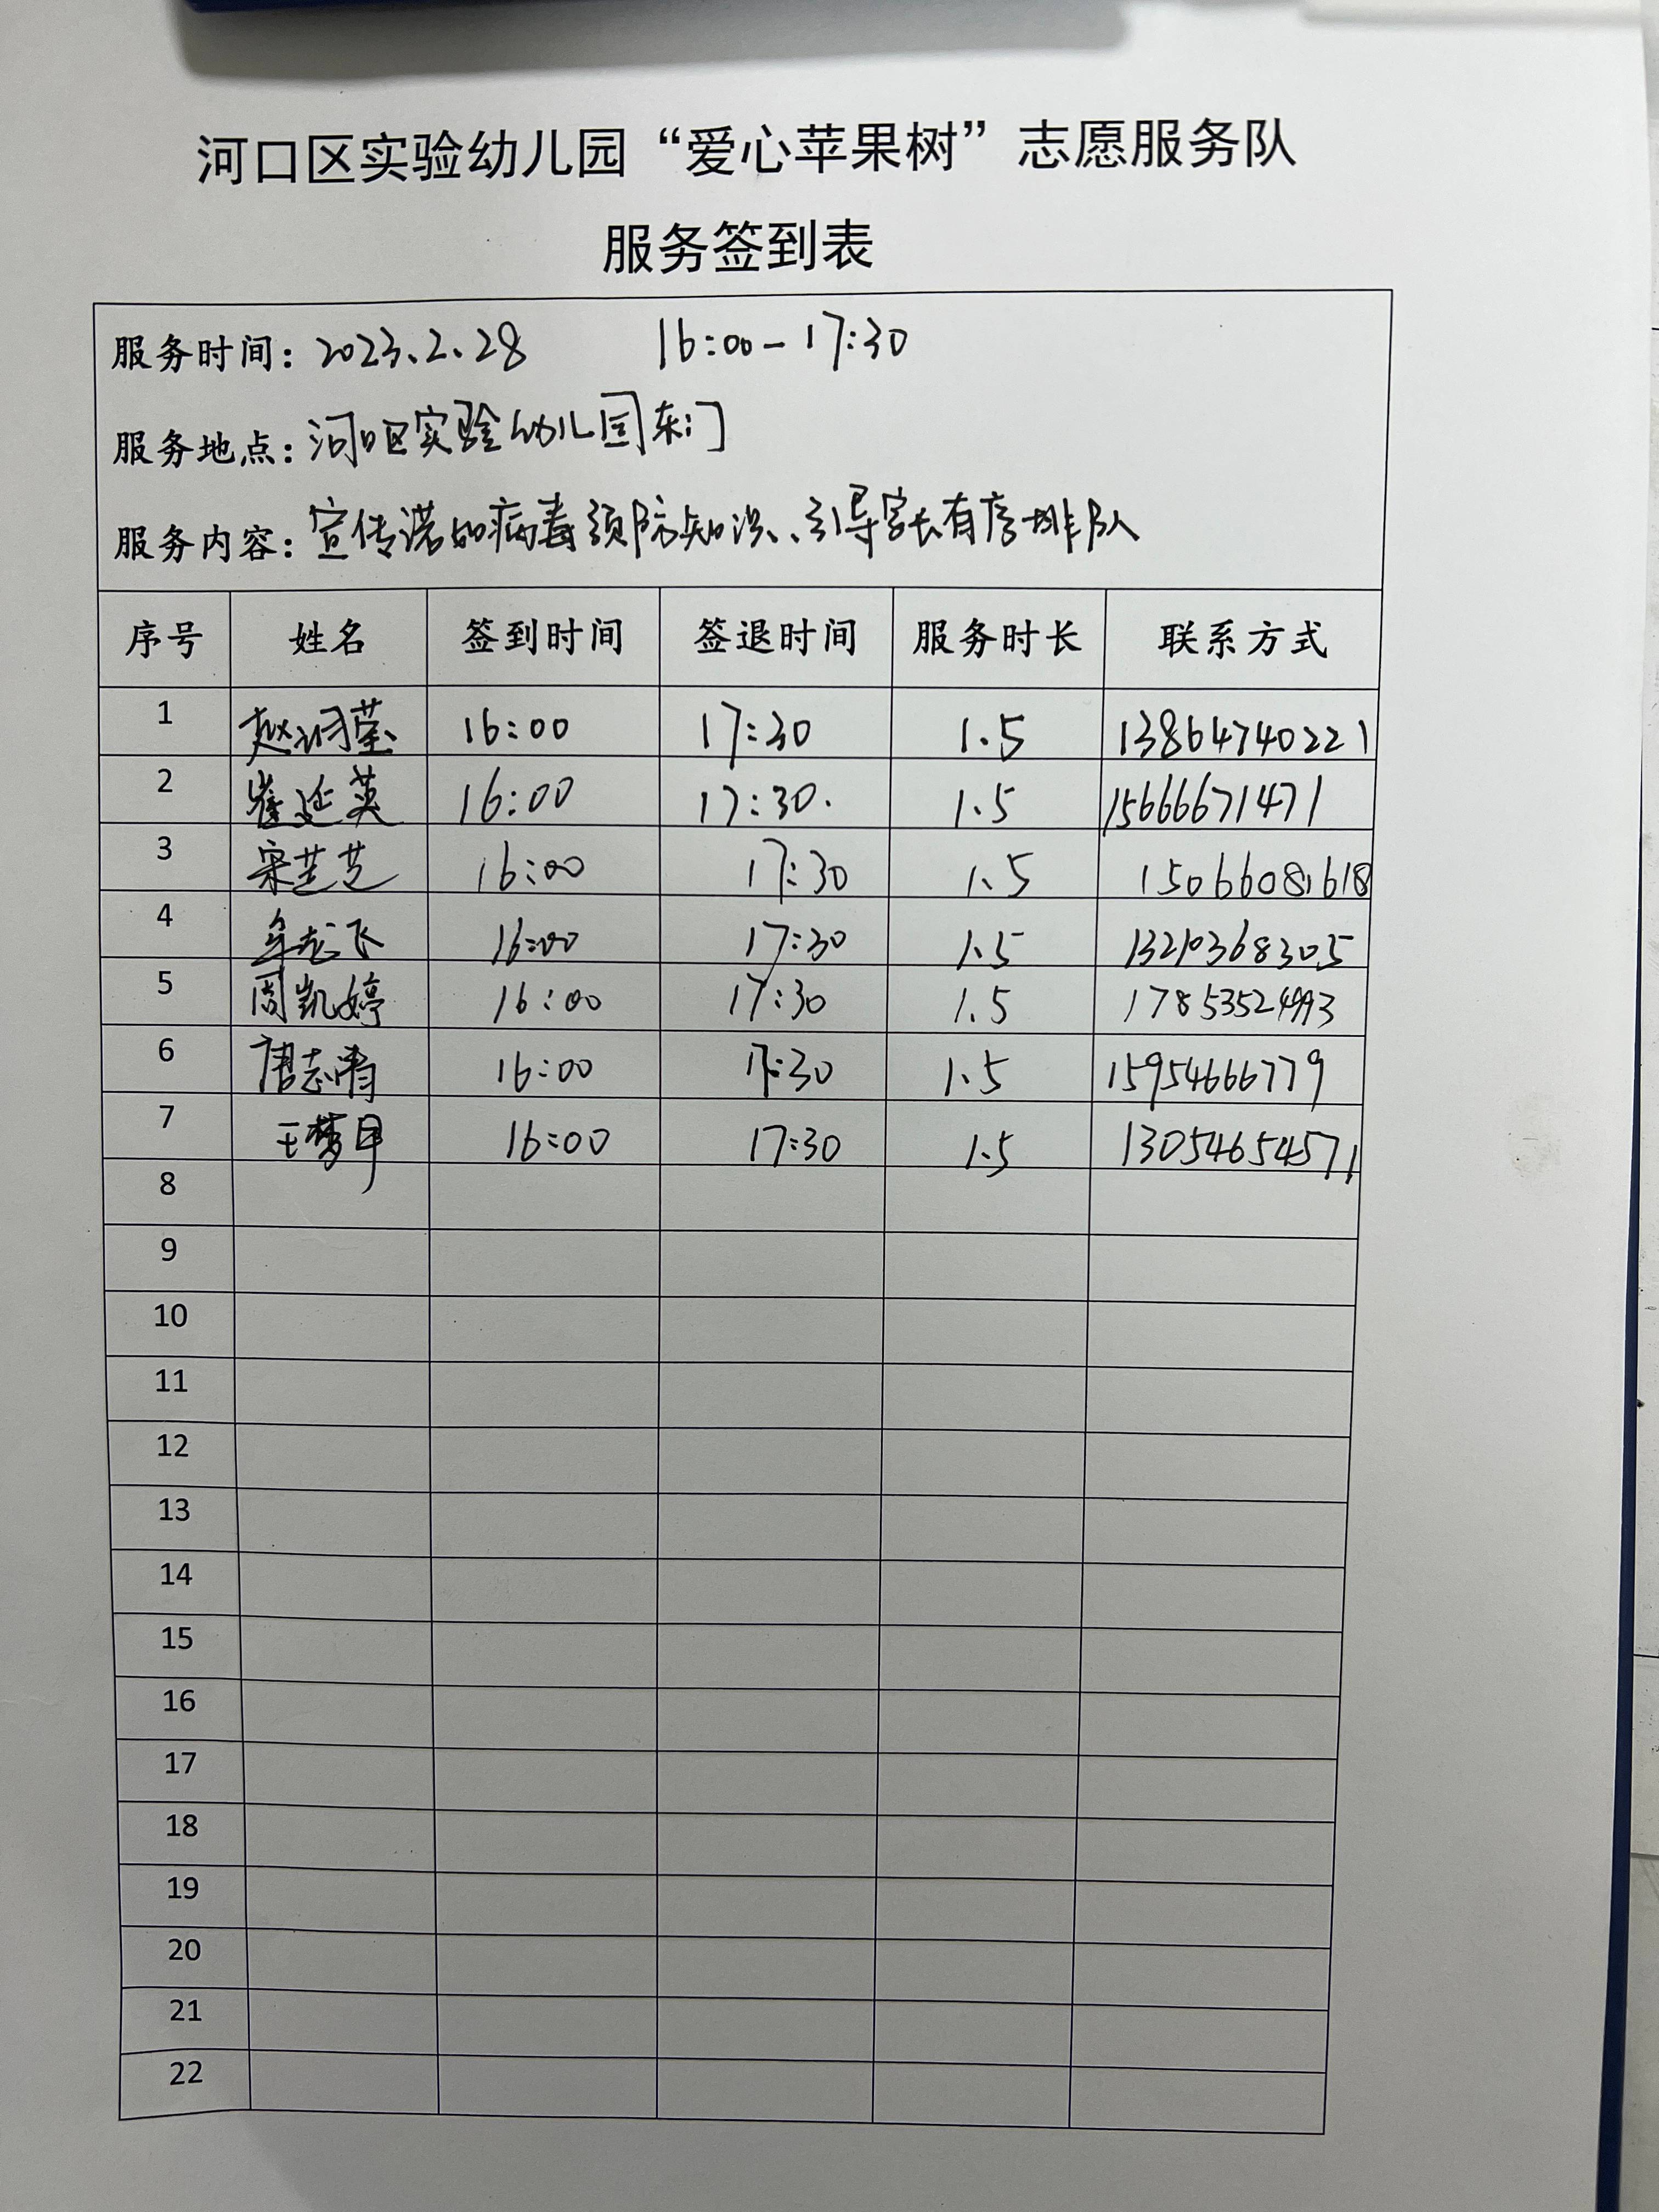 河口区实验幼儿园“爱心苹果树”志愿服务队
服务签到表
服务时间：2023.2.28 16:00-17:30
服务地点：河口区实验幼儿园东门
服务内容：宣传诺如病毒预防知识、引导家长有序排队
序号 姓名 签到时间 签退时间 服务时长 联系方式
1 16:00 17:30 1.5 13864740221
2 崔延英 16:00 17:30. 1.5 15666671471
3 宋芷芝 16:00 17:30 1.5 15066081618
4 牟龙飞 16:00 17:30 1.5 13210368305
5 周凯婷 16:00 17:30 1.5 17853524993
6 唐志清 16:00 17:30 1.5 15954666779
7 16:00 17:30 1.5 13054654571
8
9
10
11
12
13
14
15
16
17
18
19
20
21
22